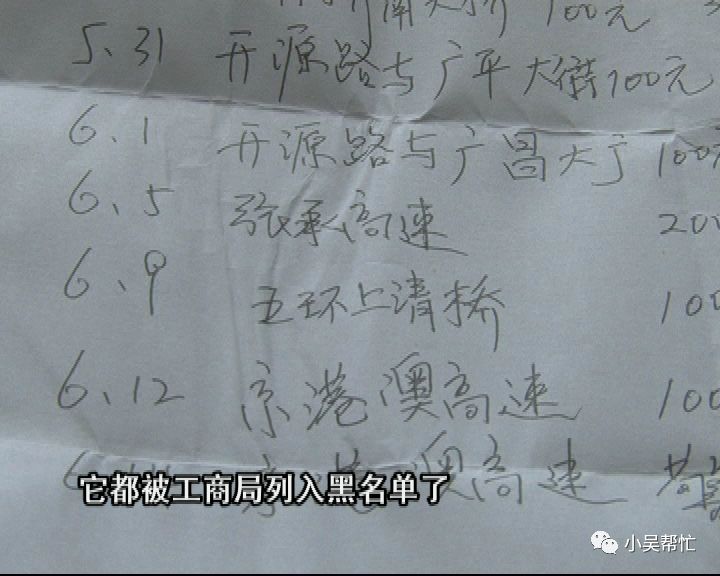 大桥 100元
5.31 开源路与广平大街100元
6.1 开源路与广昌大广 100元
6.5 张承高速 200
6.9 五环上清桥 100
6.12 京港澳高速 100
京港澳高速
它都被工商局列入黑名单了
小吴帮忙